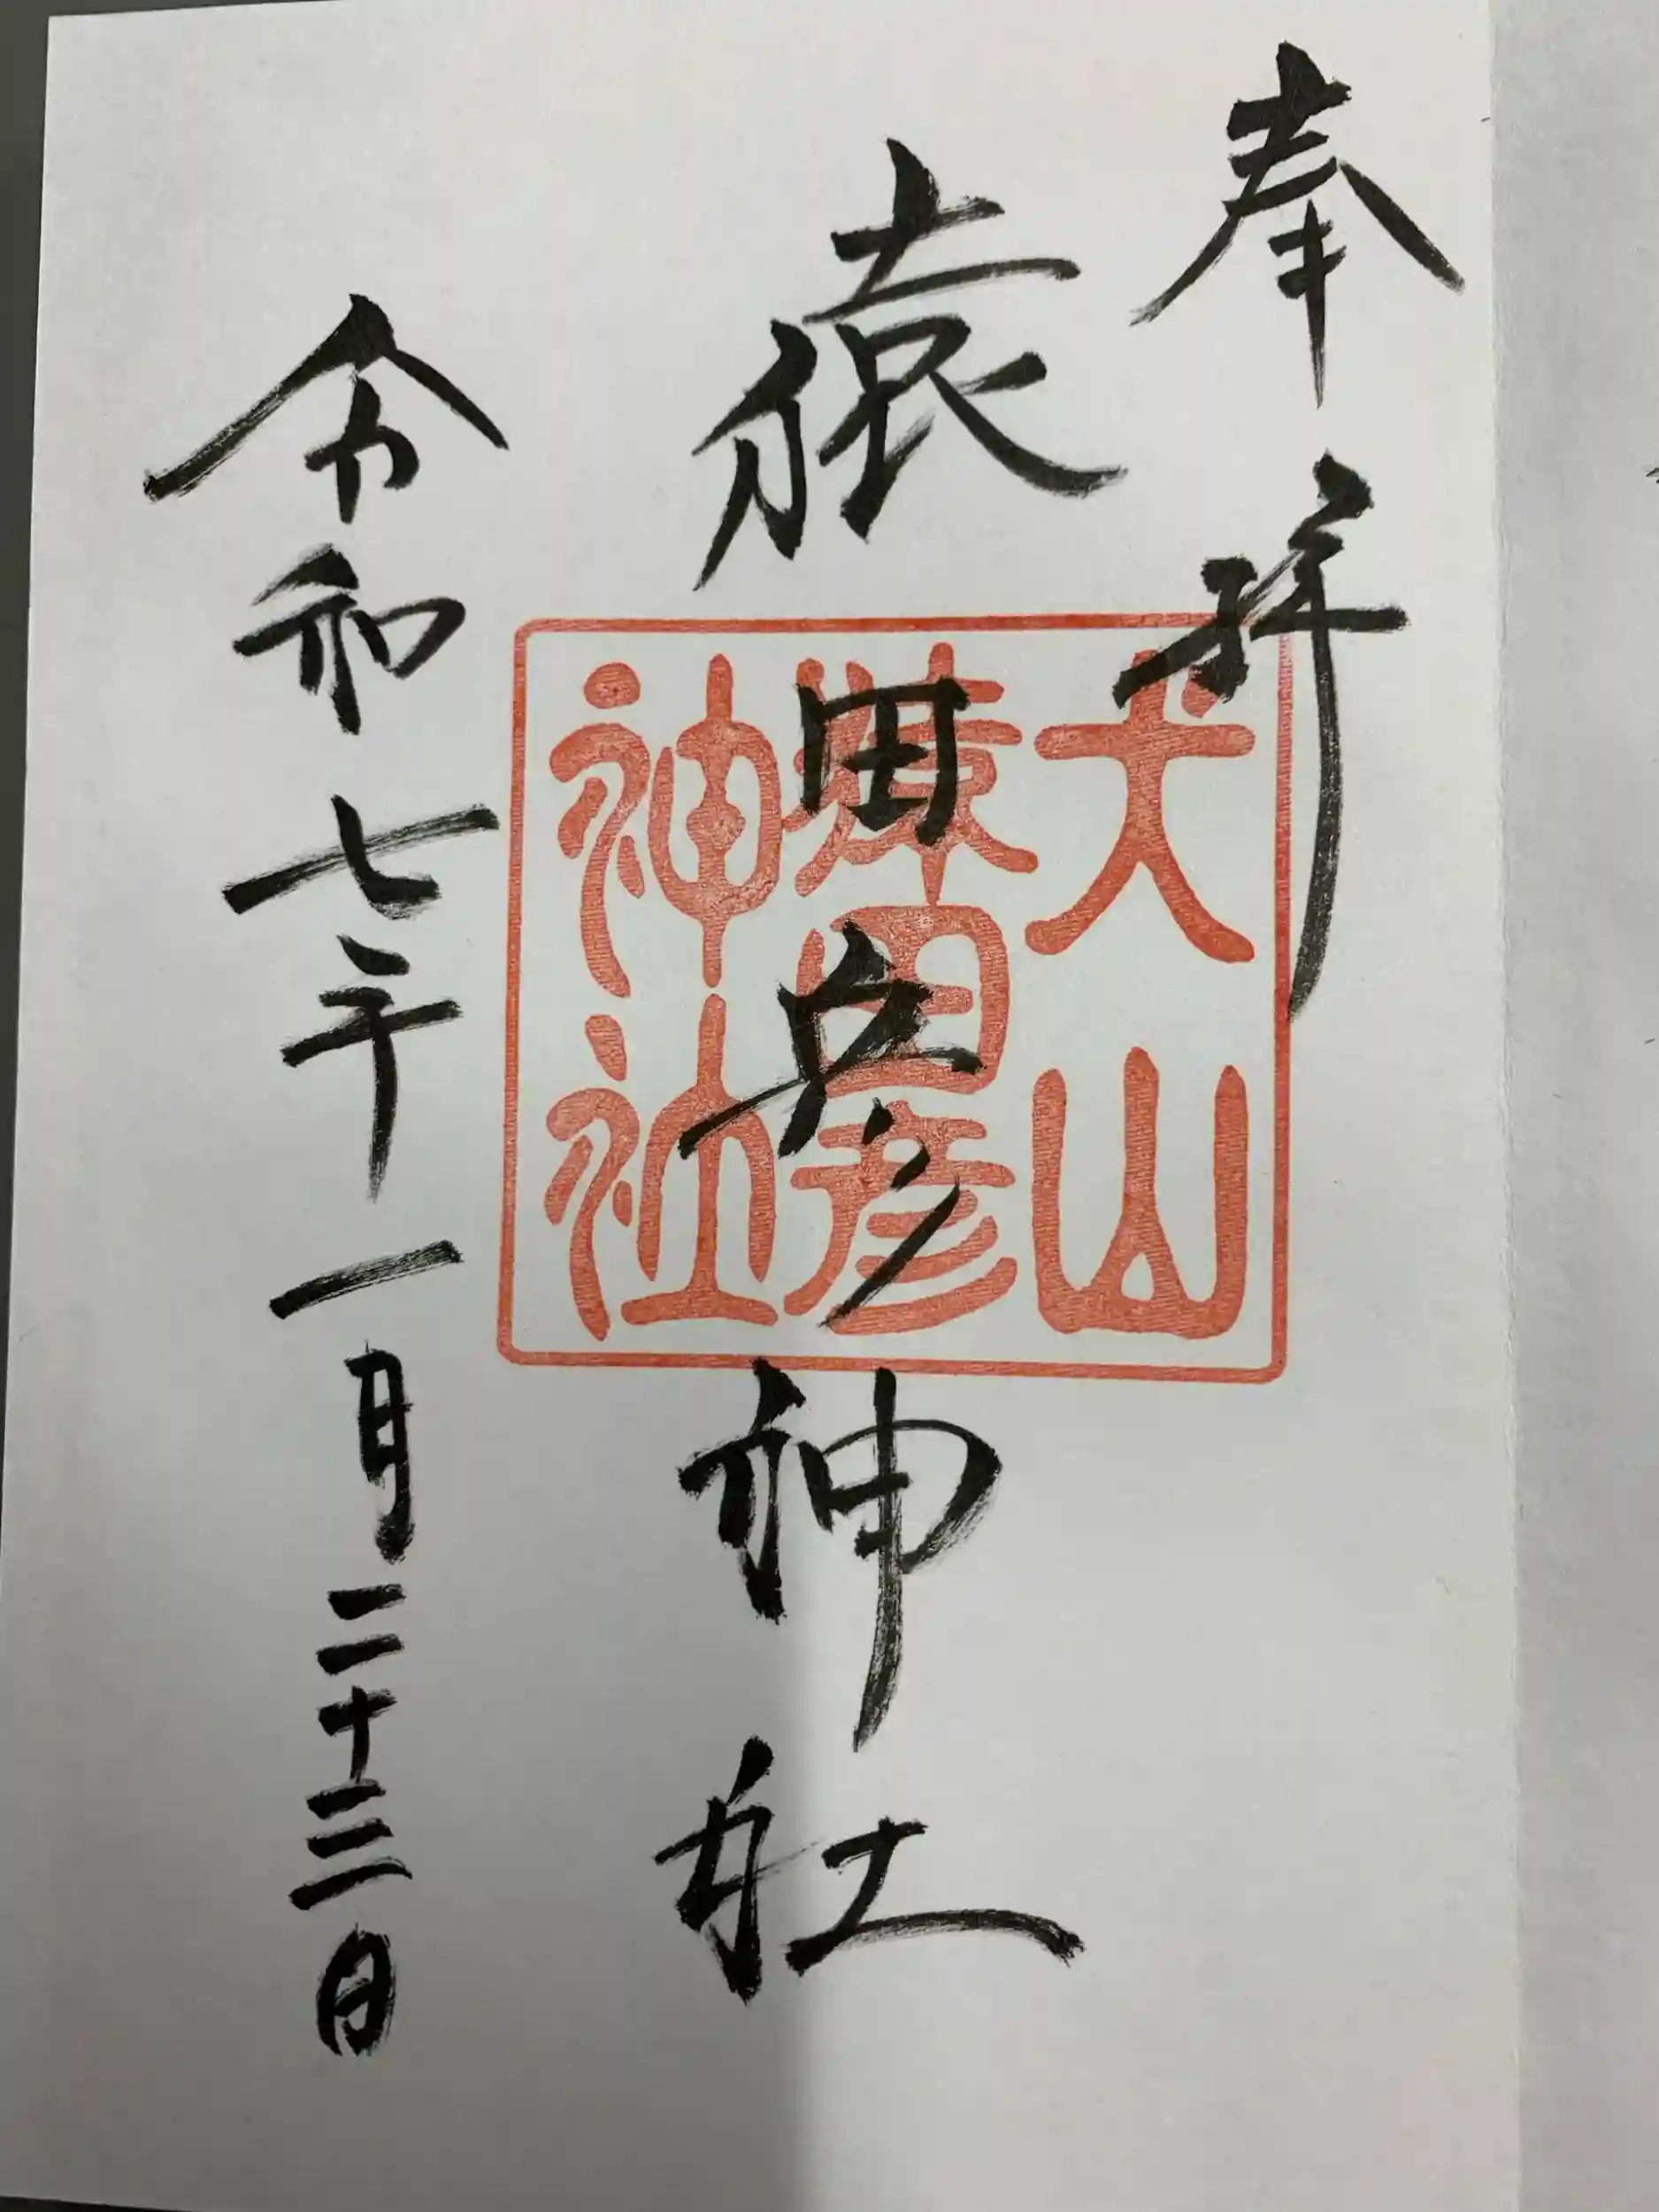 奉拝
猿田彦神社
犬山
猿田彦
神社
令和七年一月二十三日